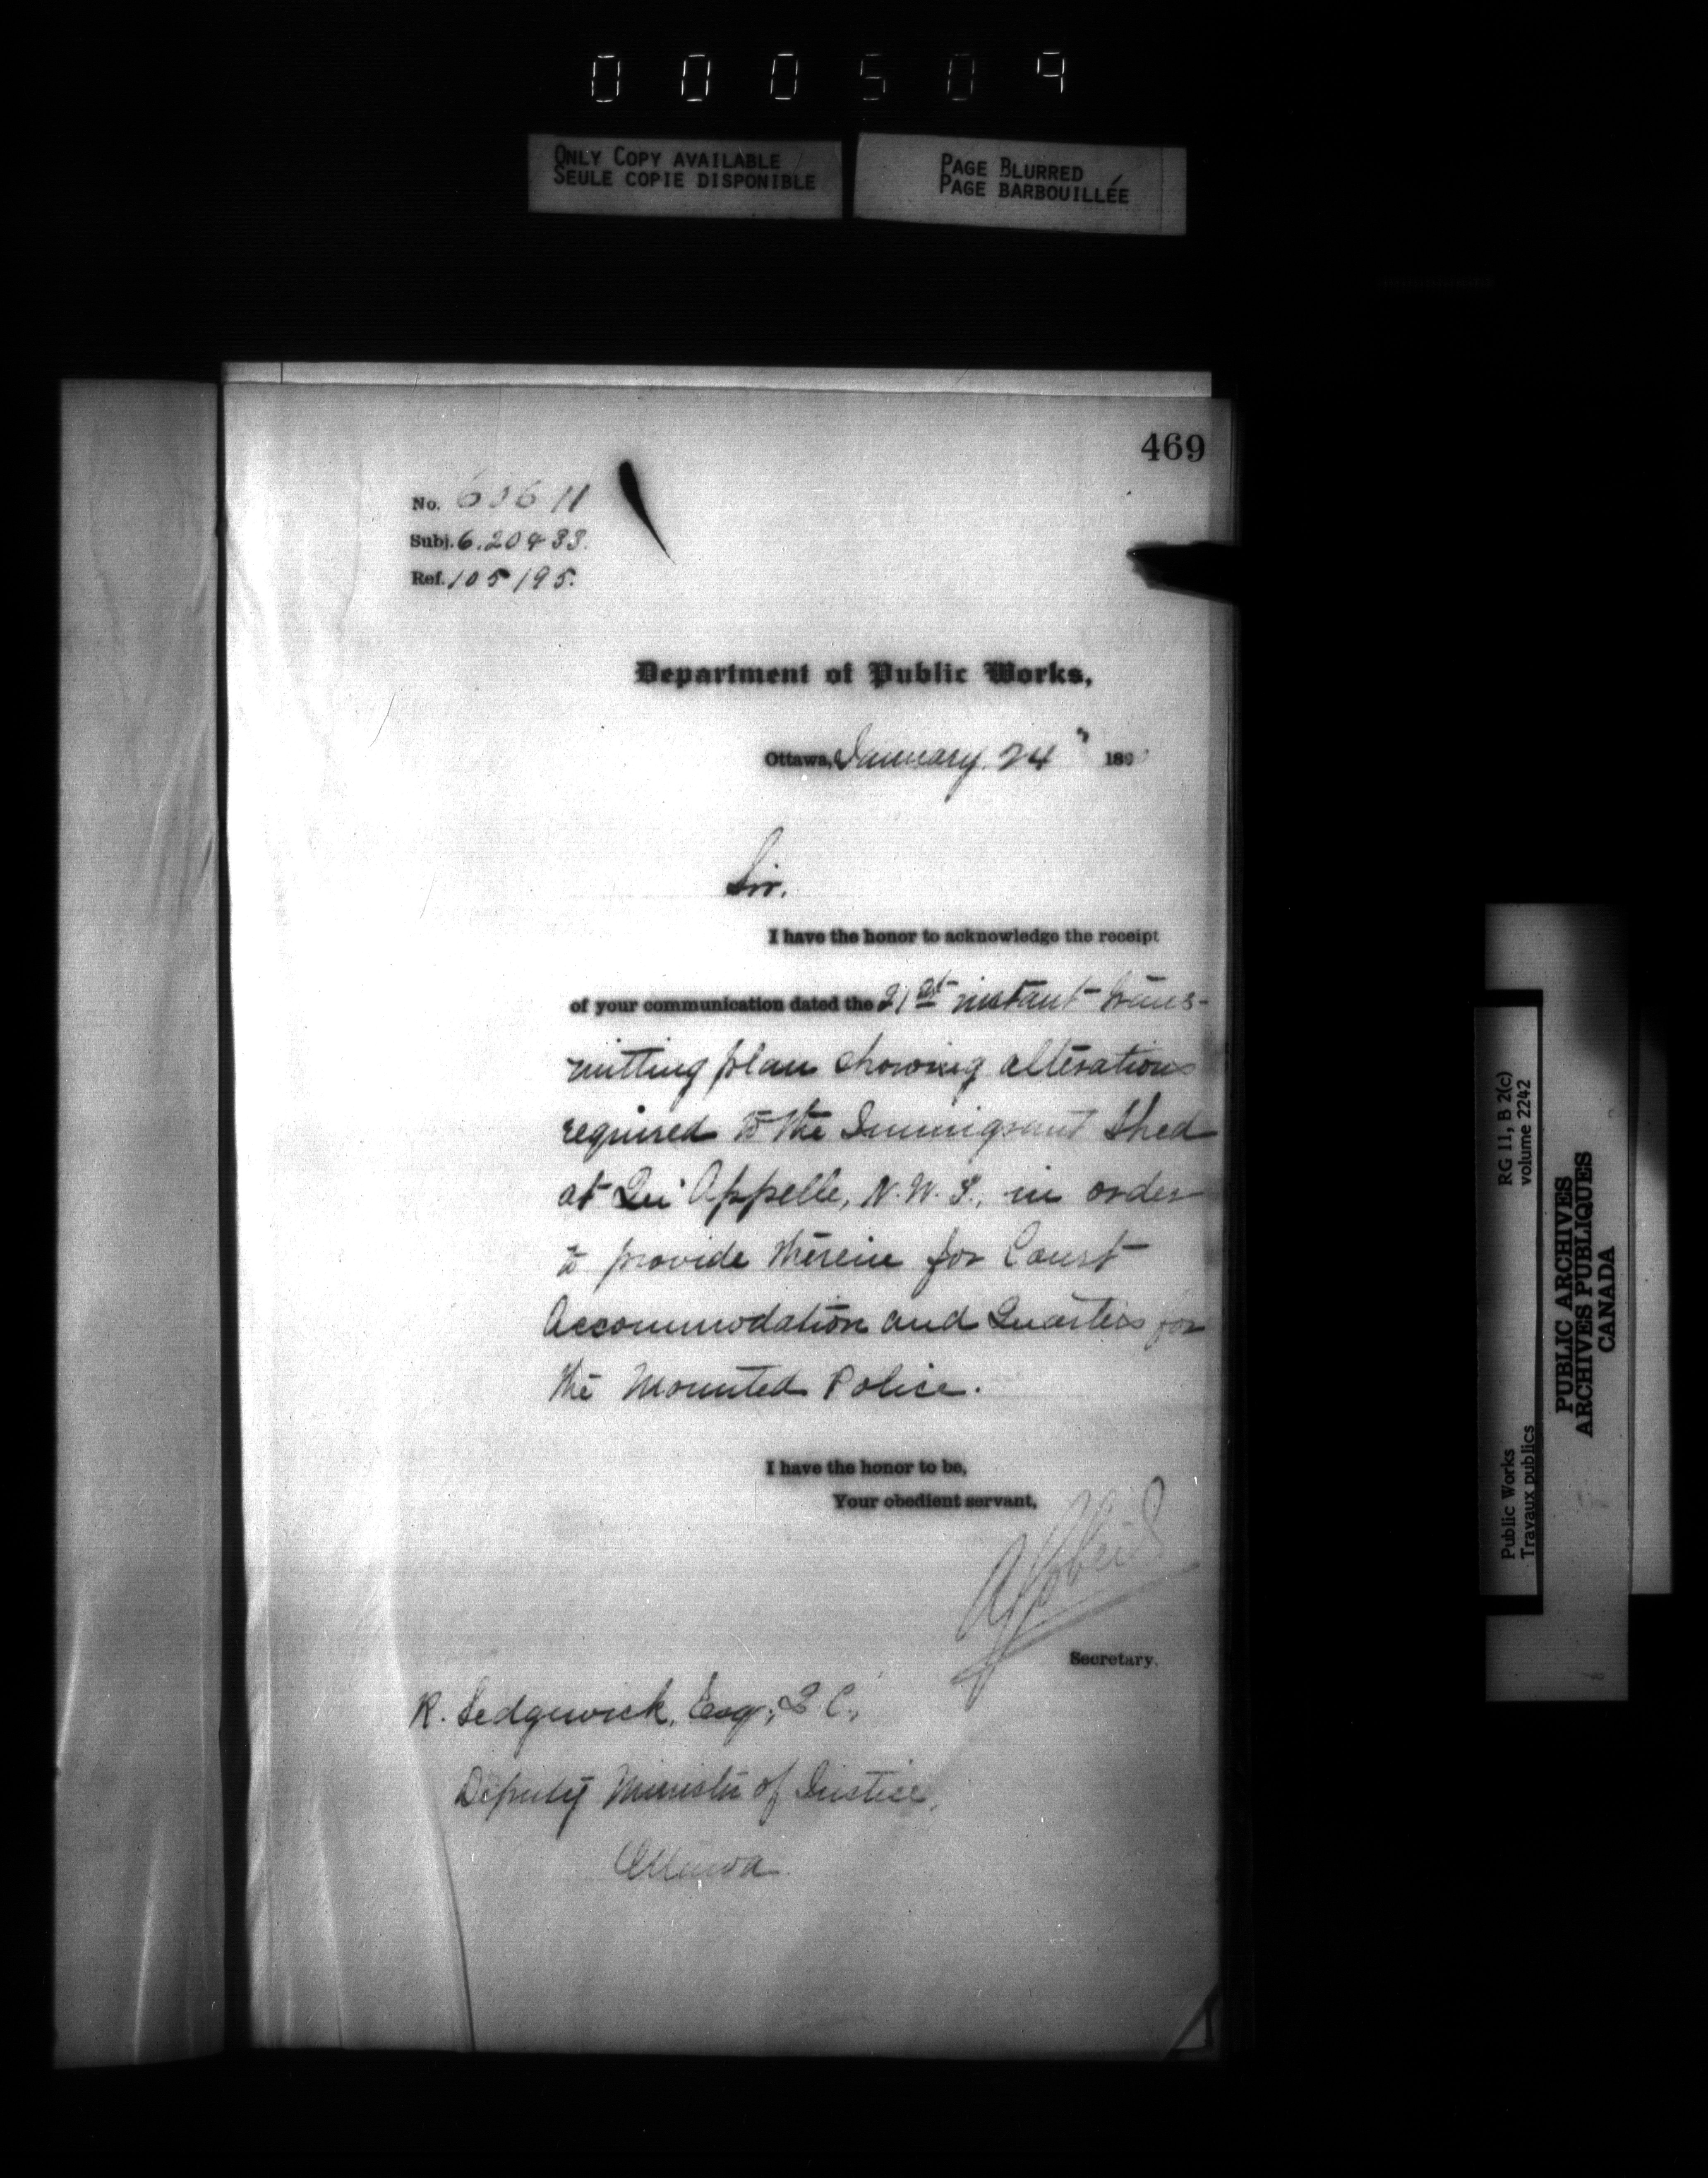 000509
ONLY COPY AVAILABLE
SEULE COPIE DISPONIBLE
PAGE BLURRED
PAGE BARBOUILLÉE
469
No. 63611
Subj. 6.20433.
Ref. 105195.
Department of Public Works,
Ottawa, January 24 189
Sir.
I have the honor to acknowledge the receipt
of your communication dated the 21st instant trans-
mitting plan showing alterations
required to the Immigrant Shed
at Qu'Appelle, N.W.T., in order
to provide therein for Court
Accommodation and Quarters for
the Mounted Police.
I have the honor to be,
Your obedient servant,
Secretary.
R. Sedgewick, Esq., Q C.,
Deputy Minister of Justice,
Ottawa
Public Works
Travaux publics
RG 11, B 2(c)
volume 2242
PUBLIC ARCHIVES
ARCHIVES PUBLIQUES
CANADA